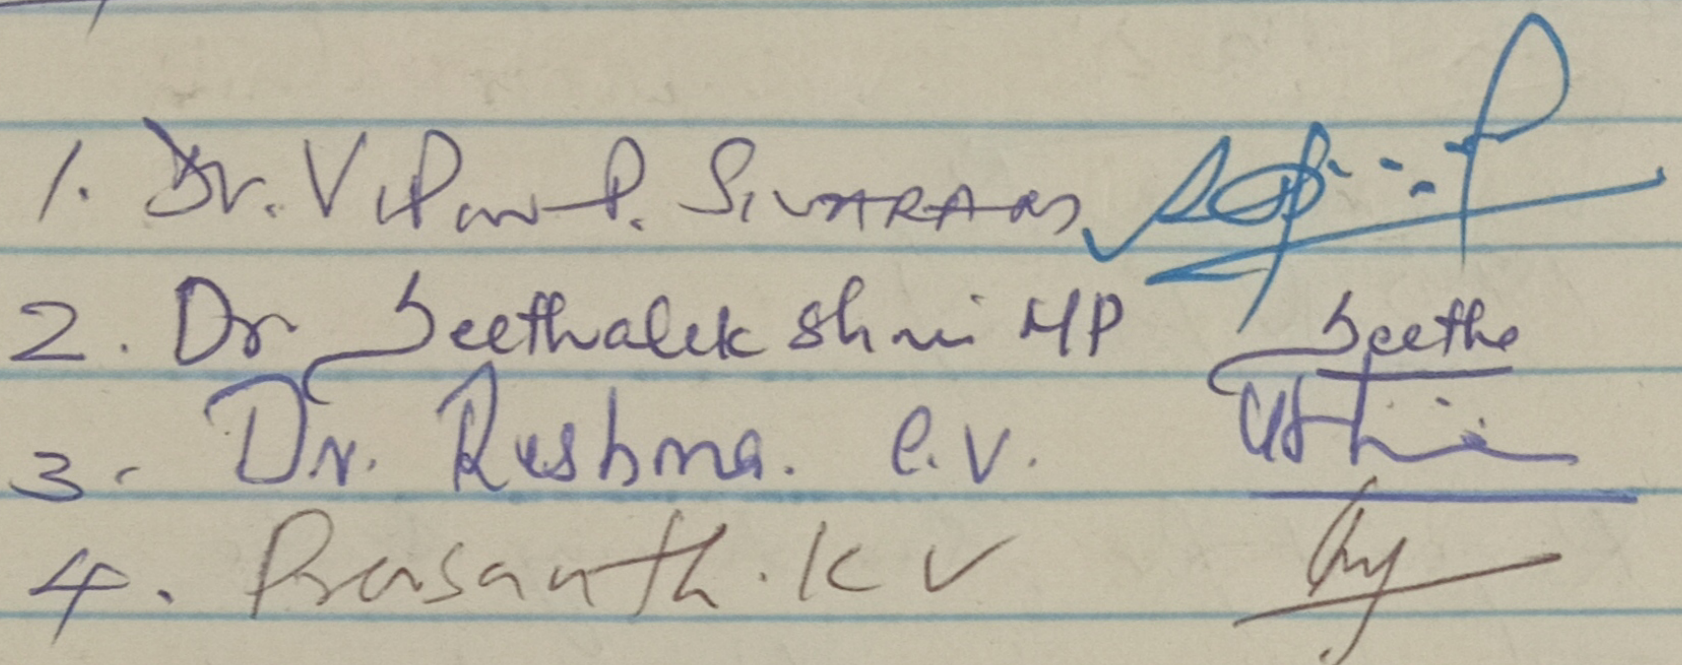 1. Dr. Vipin P. SIVARAM
2. Dr Seethalekshmi MP Seethe
3. Dr. Reshma. C.V.
4. Prasanth. K V